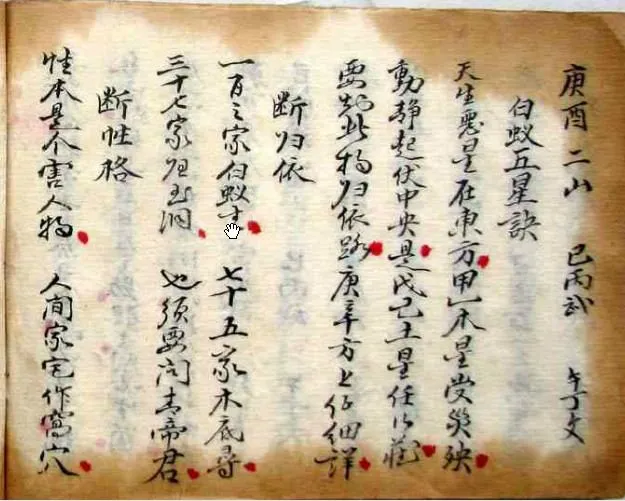 庚酉二山 巳丙武 午丁文
白蚁五星訣
天生惡星在東方甲乙木星受災殃
動静起伏中央是戊己土星任藏
要知此物归依路庚辛方上仔細詳
断归依
一百之家白蚁 七十五家木底尋
三十七家玉洞 也須要问青帝君
断性格
性本是个害人物 人间家宅作窩穴